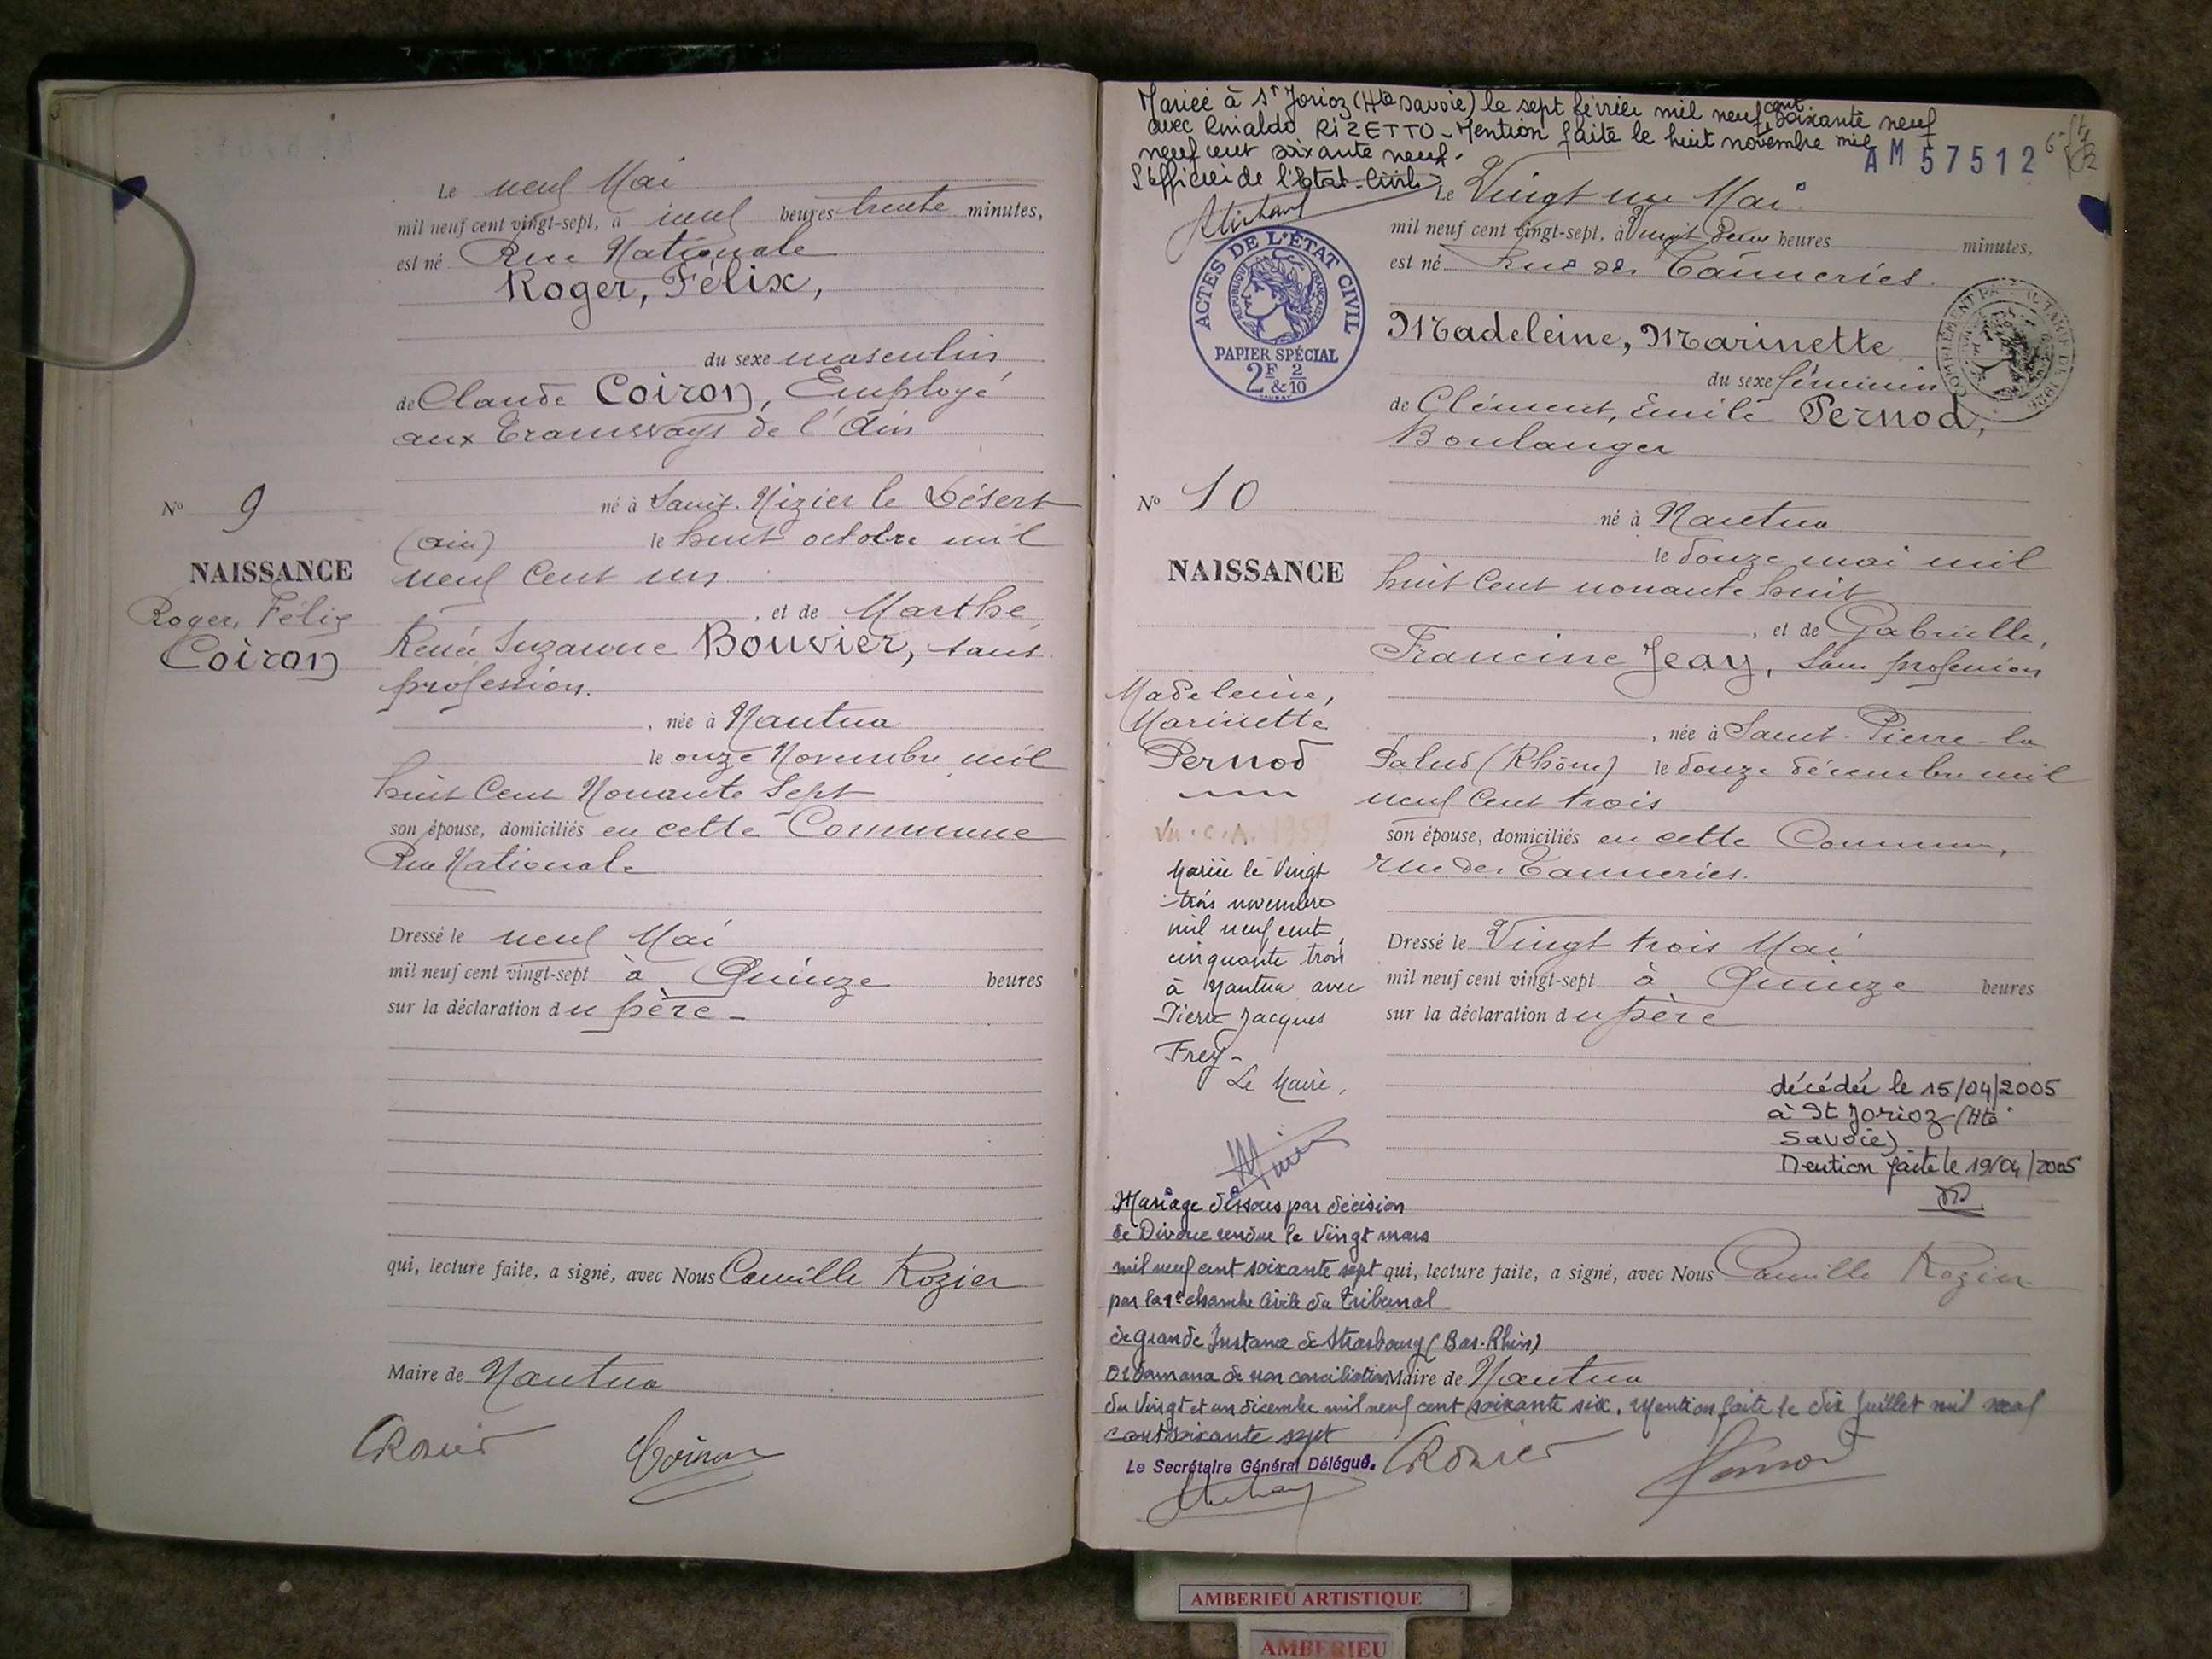 Le neuf Mai
mil neuf cent vingt-sept, à neuf heures trente minutes,
est né Rue Nationale
Roger, Félix,
du sexe masculin
de Claude Coiron, Employé
aux Tramways de l'Ain
né à Saint-Nizier le Désert
(Ain) le huit octobre mil
neuf cent un
, et de Marthe,
Renée Suzanne Bouvier, sans
profession.
, née à Nantua
le onze Novembre mil
huit cent Nonante Sept
son épouse, domiciliés en cette Commune
Rue Nationale
Dressé le neuf Mai
mil neuf cent vingt-sept à Quinze heures
sur la déclaration du père -
qui, lecture faite, a signé, avec Nous Camille Rozier
Maire de Nantua
CRozier
Coiron
No 9
NAISSANCE
Roger, Félix
Coiron
Mariée à St Jorioz (Hte Savoie) le sept février mil neuf cent soixante neuf
avec Rinaldo RIZETTO - Mention faite le huit novembre mil
neuf cent soixante neuf.
L'officier de l'Etat-Civil
AM 57512
ACTES DE L'ÉTAT CIVIL
RÉPUBLIQUE FRANÇAISE
PAPIER SPÉCIAL
2F & 2/10
Le Vingt un Mai
mil neuf cent vingt-sept, à Vingt deux heures minutes,
est né Rue des Tanneries
Madeleine, Marinette
du sexe féminin
de Clément, Emile Pernod,
Boulanger
né à Nantua
le douze mai mil
huit cent nonante huit
, et de Gabrielle,
Francine Jeay, Sans profession
, née à Saint-Pierre-la
Palud (Rhône) le douze décembre mil
neuf cent trois
son épouse, domiciliés en cette Commune,
rue des Tanneries.
Dressé le Vingt trois Mai
mil neuf cent vingt-sept à Quinze heures
sur la déclaration du père
décédée le 15/04/2005
à St Jorioz (Hte
Savoie)
Mention faite le 19/04/2005
qui, lecture faite, a signé, avec Nous Camille Rozier
Maire de Nantua
CRozier
Pernod
No 10
NAISSANCE
Madeleine,
Marinette
Pernod
Vu. C.A. 1959
Mariée le Vingt
trois novembre
mil neuf cent
cinquante trois
à Nantua avec
Pierre Jacques
Frey -
Le Maire,
Mariage dissous par décision
de Divorce rendue le Vingt mars
mil neuf cent soixante sept
par la 1e chambre Civile du Tribunal
de Grande Instance de Strasbourg (Bas-Rhin)
Ordonnance de non conciliation
du Vingt et un décembre mil neuf cent soixante six. Mention faite le dix Juillet mil neuf
cent soixante sept
Le Secrétaire Général Délégué.
AMBERIEU ARTISTIQUE
AMBERIEU